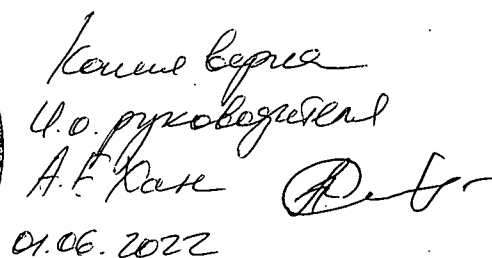 Копия верна
И.о. руководителя
А.Е. Хан
01.06.2022